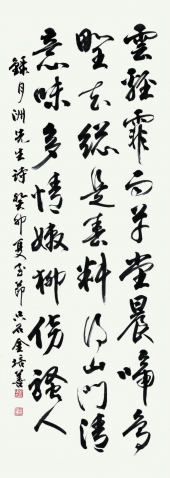 雲輕霏雨草堂晨啼鳥
聖去總是春料得山門清
意味多情嫩柳傍騷人
錄月洲先生詩 癸卯夏至節 金培善